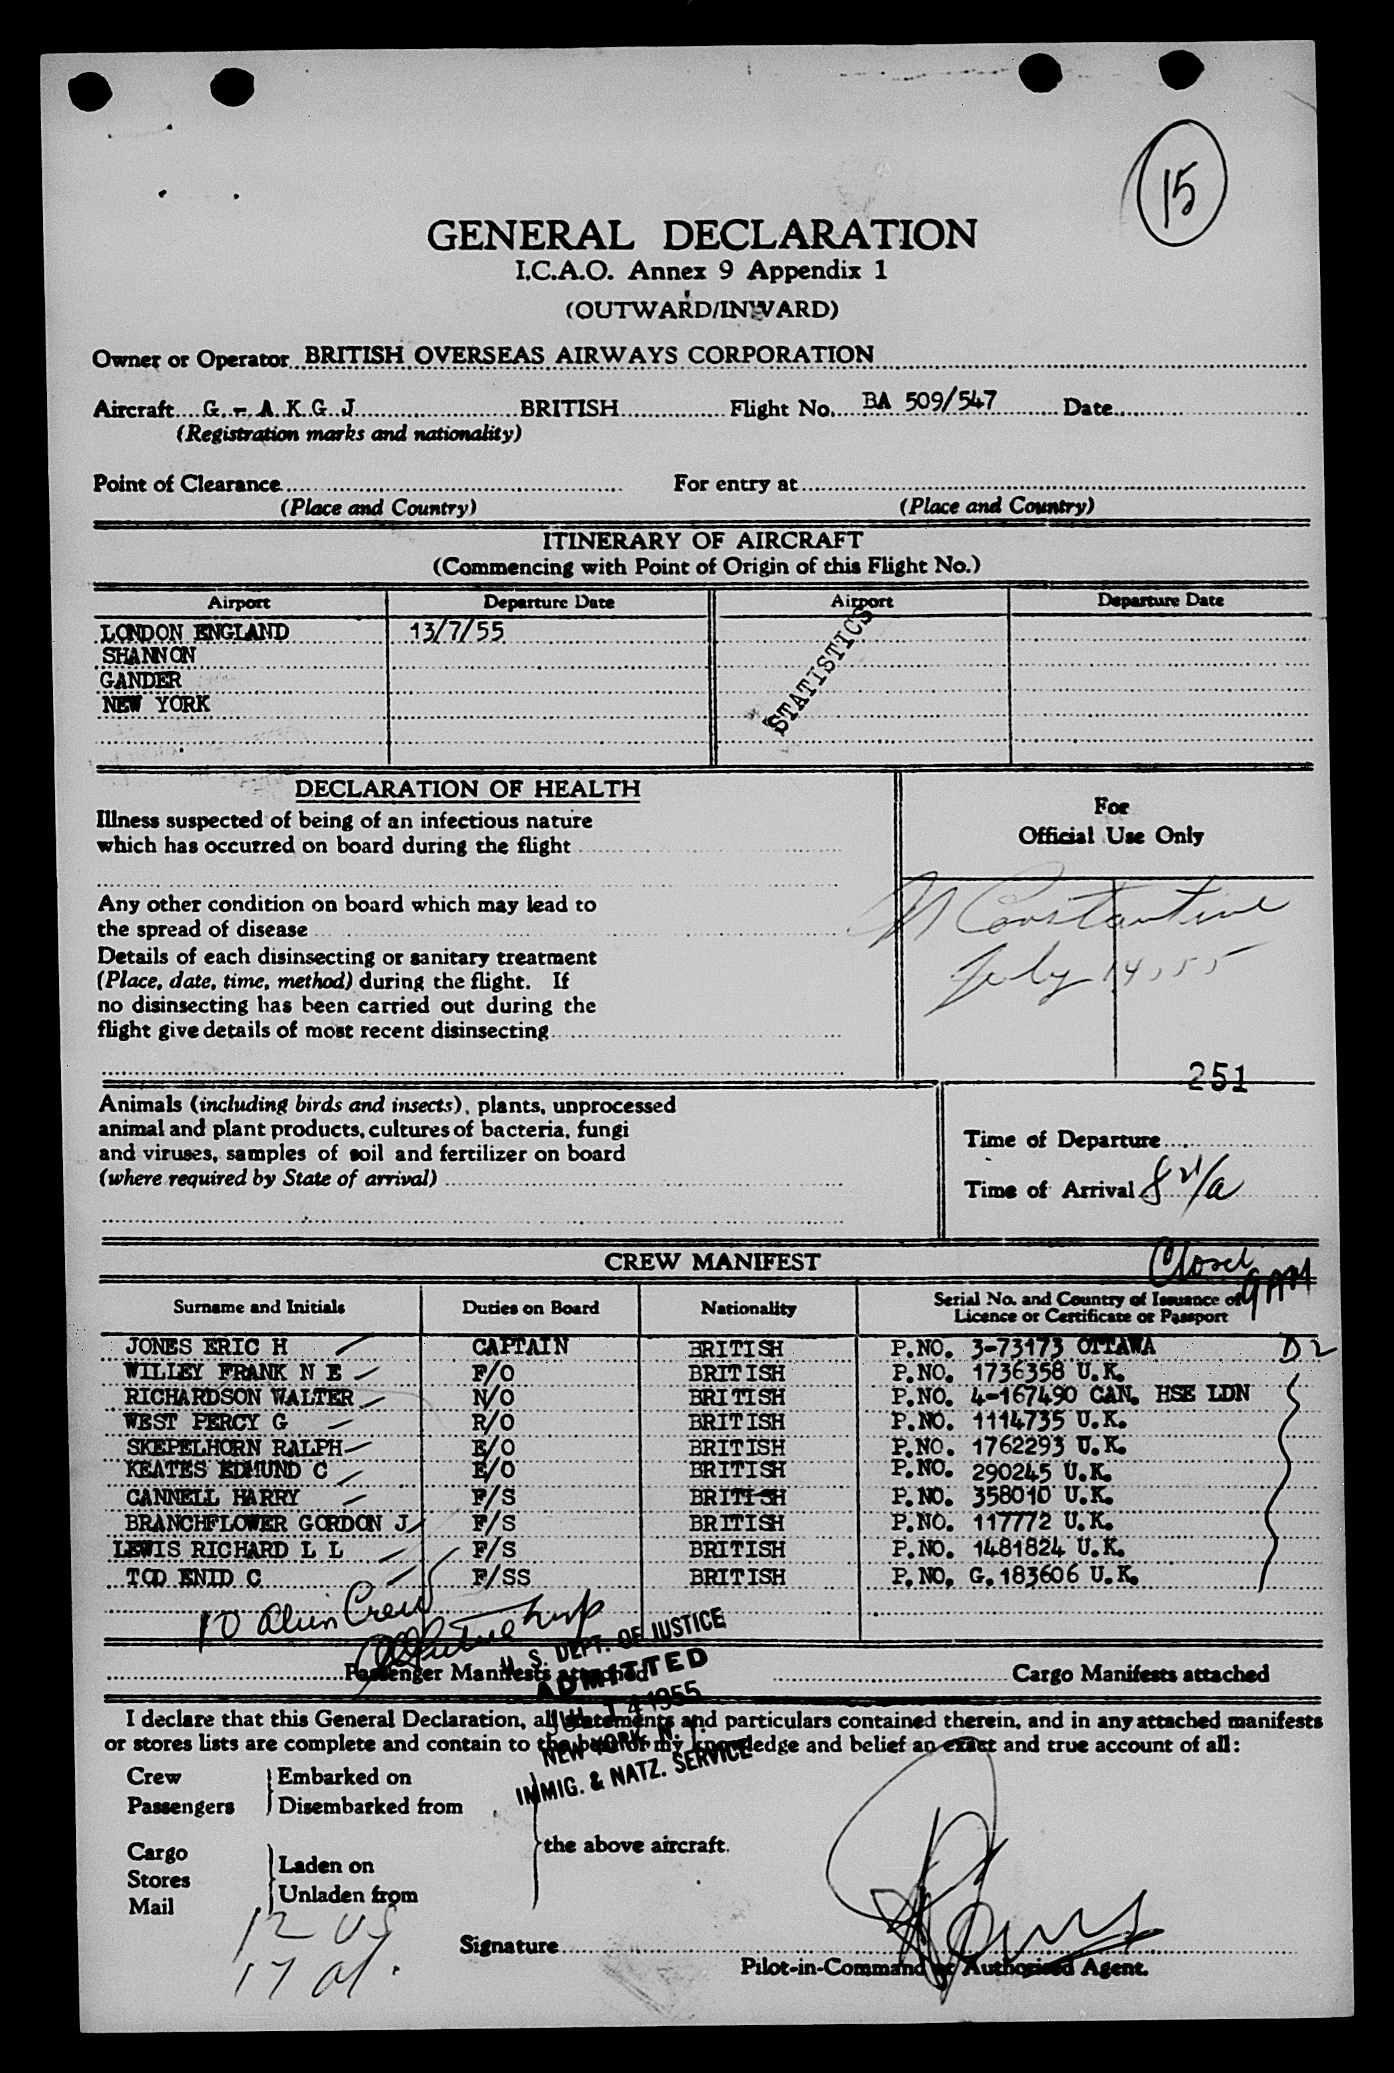 15
GENERAL DECLARATION
I.C.A.O. Annex 9 Appendix 1
(OUTWARD/INWARD)
Owner or Operator BRITISH OVERSEAS AIRWAYS CORPORATION
Aircraft G - A K G J BRITISH Flight No. BA 509/547 Date
(Registration marks and nationality)
Point of Clearance For entry at
(Place and Country) (Place and Country)
ITINERARY OF AIRCRAFT
(Commencing with Point of Origin of this Flight No.)
Airport Departure Date Airport Departure Date
LONDON ENGLAND 13/7/55
SHANNON
GANDER
NEW YORK
STATISTICS
DECLARATION OF HEALTH
Illness suspected of being of an infectious nature
which has occurred on board during the flight
For
Official Use Only
Any other condition on board which may lead to
the spread of disease
Constantine
July 14, 55
Details of each disinsecting or sanitary treatment
(Place, date, time, method) during the flight. If
no disinsecting has been carried out during the
flight give details of most recent disinsecting
251
Animals (including birds and insects), plants, unprocessed
animal and plant products, cultures of bacteria, fungi
and viruses, samples of soil and fertilizer on board
(where required by State of arrival)
Time of Departure
Time of Arrival
CREW MANIFEST
Closed 9 PM
Surname and Initials Duties on Board Nationality Serial No. and Country of Issuance of
Licence or Certificate or Passport
JONES ERIC H CAPTAIN BRITISH P.NO. 3-73173 OTTAWA D2
WILLEY FRANK N E F/O BRITISH P.NO. 1736358 U.K.
RICHARDSON WALTER N/O BRITISH P.NO. 4-167490 CAN. HSE LDN
WEST PERCY G R/O BRITISH P.NO. 1114735 U.K.
SKEPELHORN RALPH E/O BRITISH P.NO. 1762293 U.K.
KEATES EDMUND C E/O BRITISH P.NO. 290245 U.K.
CANNELL HARRY F/S BRITISH P.NO. 358010 U.K.
BRANCHFLOWER GORDON J F/S BRITISH P.NO. 117772 U.K.
LEWIS RICHARD L L F/S BRITISH P.NO. 1481824 U.K.
TOD ENID C F/SS BRITISH P.NO. G.183606 U.K.
10 alien Crew
Passenger Manifests attached Cargo Manifests attached
U. S. DEPT. OF JUSTICE
ADMITTED
JUL 14 1955
NEW YORK, N. Y.
IMMIG. & NATZ. SERVICE
I declare that this General Declaration, all statements and particulars contained therein, and in any attached manifests
or stores lists are complete and contain to the best of my knowledge and belief an exact and true account of all:
Crew Embarked on
Passengers Disembarked from
the above aircraft.
Cargo
Stores
Mail
Laden on
Unladen from
12 US
17 al.
Signature
Pilot-in-Command or Authorised Agent.